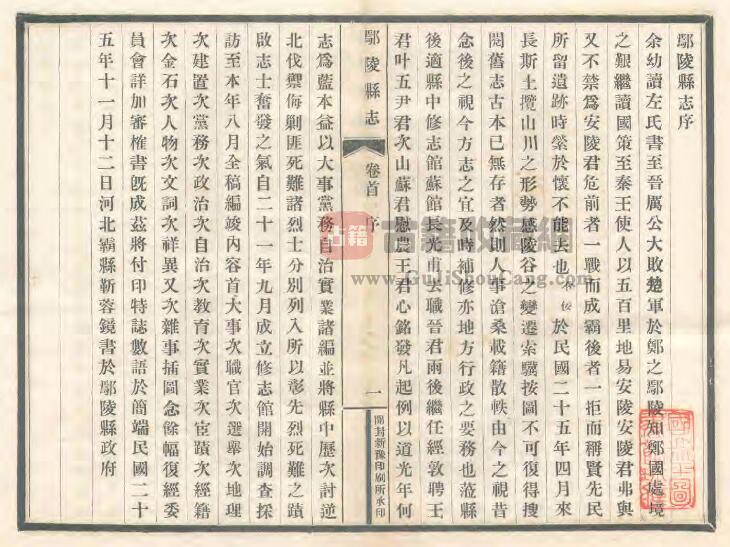 鄢陵縣志序
余幼讀左氏書至晉厲公大敗楚軍於鄭之鄢陵知鄭國處境
之艱繼讀國策至秦王使人以五百里地易安陵安陵君弗與
又不禁爲安陵君危前者一戰而成霸後者一拒而稱賢先民
所留遺跡時縈於懷不能去也 於民國二十五年四月來
長斯土攬山川之形勢感陵谷之變遷索驥按圖不可復得搜
閱舊志古本已無存者然則人事滄桑載籍散軼由今之視昔
念後之視今方志之宜及時補修亦地方行政之要務也蒞縣
後適縣中修志館蘇館長光甫去職晉君雨後繼任經敦聘王
君叶五尹君次山蘇君慰農王君心銘發凡起例以道光年何
鄢陵縣志
卷首 序
一
開封新豫印刷所承印
志爲藍本益以大事黨務自治實業諸編並將縣中歷次討逆
北伐禦侮剿匪死難諸烈士分別列入所以彰先烈死難之蹟
啟志士奮發之氣自二十一年九月成立修志館開始調查採
訪至本年八月全稿編竣內容首大事次職官次選舉次地理
次建置次黨務次政治次自治次教育次實業次宦蹟次經籍
次金石次人物次文詞次祥異又次雜事插圖念餘幅復經委
員會詳加審榷書既成茲將付印特誌數語於簡端民國二十
五年十一月十二日河北霸縣靳蓉鏡書於鄢陵縣政府
古籍
古籍收藏網
www.GuJiShouCang.com